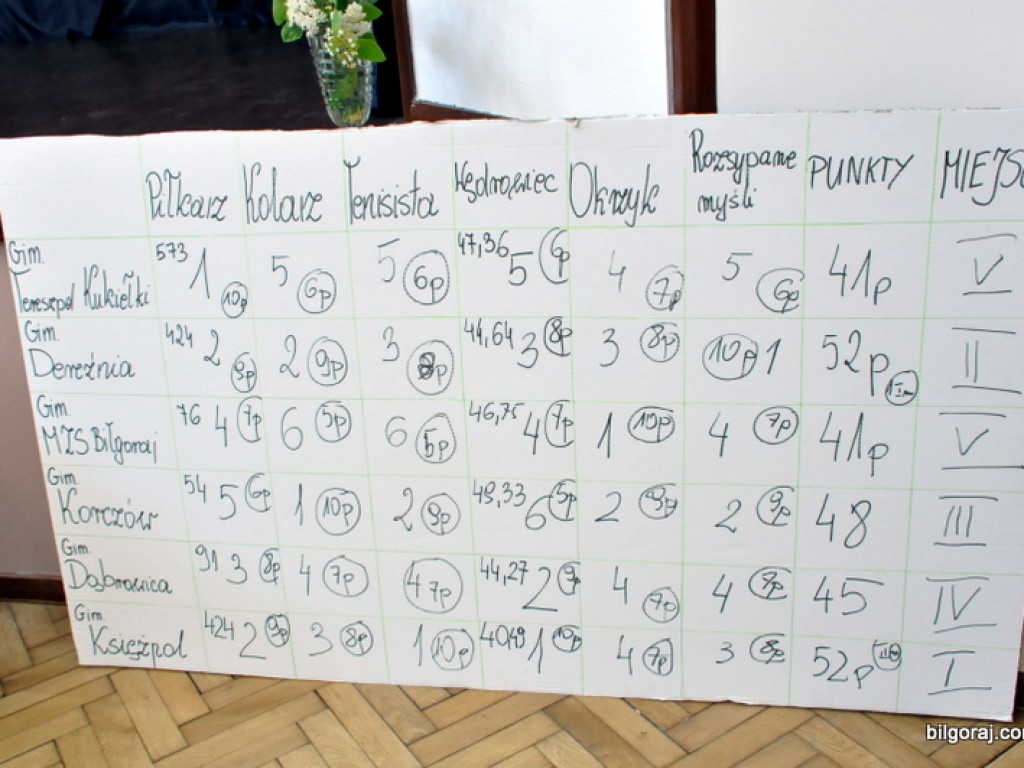 Piłkarz Kolarz Tenisista Wędrowiec Okrzyk Rozsypane myśli PUNKTY MIEJSC
Gim. Tereszpol Kukiełki 573 1 10p 5 6p 5 6p 47,36 5 6p 4 7p 5 6p 41p V
Gim. Dereźnia 424 2 9p 2 9p 3 8p 44,64 3 8p 3 8p 10p 1 52p II
Gim. MZS Biłgoraj 76 4 7p 6 5p 6 5p 46,75 4 7p 1 10p 4 7p 41p V
Gim. Korczów 54 5 6p 1 10p 2 9p 49,33 6 5p 2 9p 2 9p 48 III
Gim. Dąbrowica 91 3 8p 4 7p 4 7p 44,27 2 9p 4 7p 4 7p 45 IV
Gim. Księżpol 424 2 9p 3 8p 1 10p 40,49 1 10p 4 7p 3 8p 52p I
bilgoraj.com